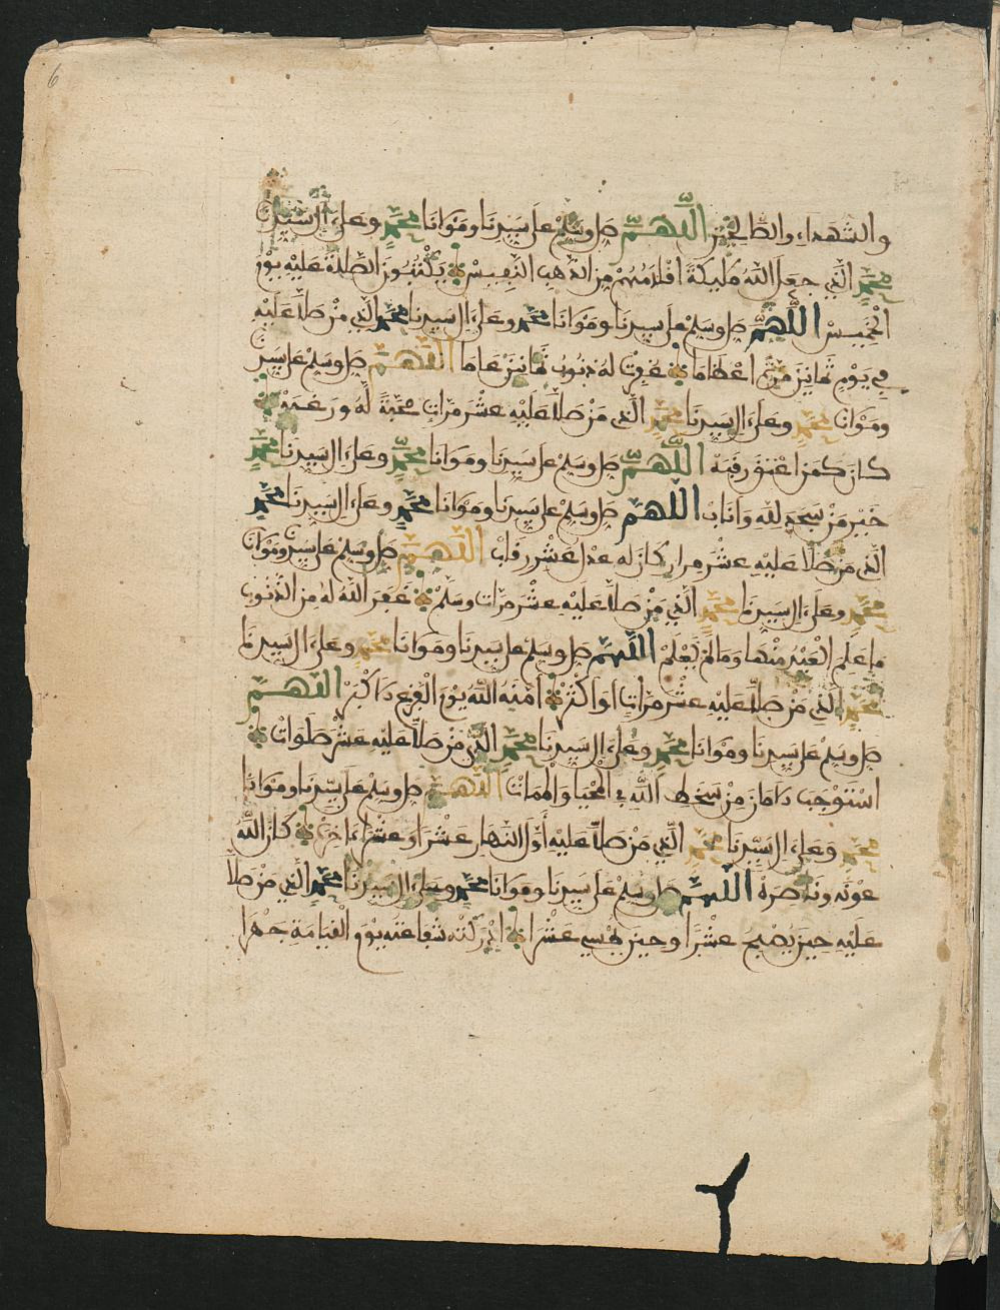 والشهداء والصالحين اللهم صل وسلم على سيدنا ومولانا محمد وعلى ءال سيدنا
محمد الذي جعل الله مليكة اقلامهم من الذهب النفيس يكتبون الصلاة عليه يوم
الخميس اللهم صل وسلم على سيدنا ومولانا محمد وعلى ءال سيدنا محمد الذي من صلا عليه
في يوم ثمانين مرة اعظاما غفرت له ذنوب ثمانين عاما اللهم صل وسلم على سيدنا
ومولانا محمد وعلى ءال سيدنا محمد الذي من صلا عليه عشر مرات محبة له ورغبة
كان كمن اعتق رقبة اللهم صل وسلم على سيدنا ومولانا محمد وعلى ءال سيدنا محمد
خير من سجد لله واناب اللهم صل وسلم على سيدنا ومولانا محمد وعلى ءال سيدنا محمد
الذي من صلا عليه عشر مرار كان له عدل عشر رقاب اللهم صل وسلم على سيدنا ومولانا
محمد وعلى ءال سيدنا محمد الذي من صلا عليه عشر مرات وسلم غفر الله له من الذنوب
ما علم العبد منها وما لم يعلم اللهم صل وسلم على سيدنا ومولانا محمد وعلى ءال سيدنا
محمد الذي من صلا عليه عشر مرات او اكثر امنه الله يوم الفزع الاكبر اللهم
صل وسلم على سيدنا ومولانا محمد وعلى ءال سيدنا محمد الذي من صلا عليه عشر صلوات
استوجب الامان من سخط الله في المحيا والممات اللهم صل وسلم على سيدنا ومولانا
محمد وعلى ءال سيدنا محمد الذي من صلا عليه اول النهار عشرا وعشرا ءاخره كان الله
عونه وناصره اللهم صل وسلم على سيدنا ومولانا محمد وعلى ءال سيدنا محمد الذي من صلا
عليه حين يصبح عشرا وحين يمسي عشرا ادركته شفاعته يوم القيامة جهرا